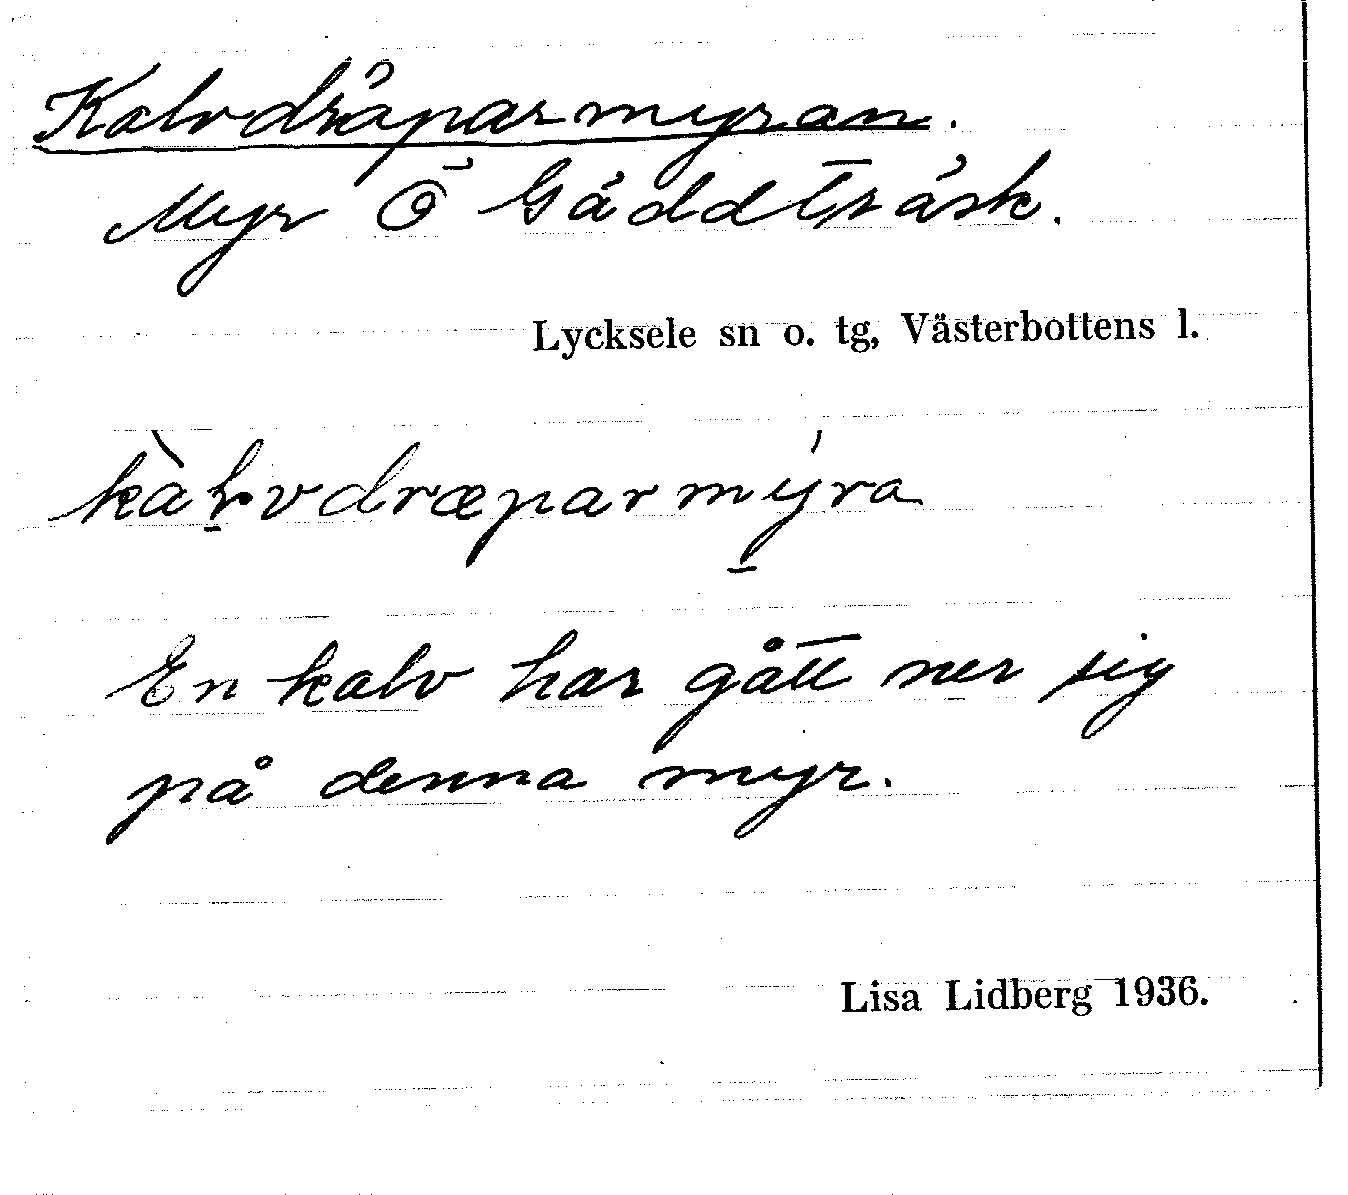 Kalvdräparmyran.
Myr Ö Gäddträsk.
Lycksele sn o. tg, Västerbottens l.
kàḻvdræparmýra
En kalv har gått ner sig
på denna myr.
Lisa Lidberg 1936.